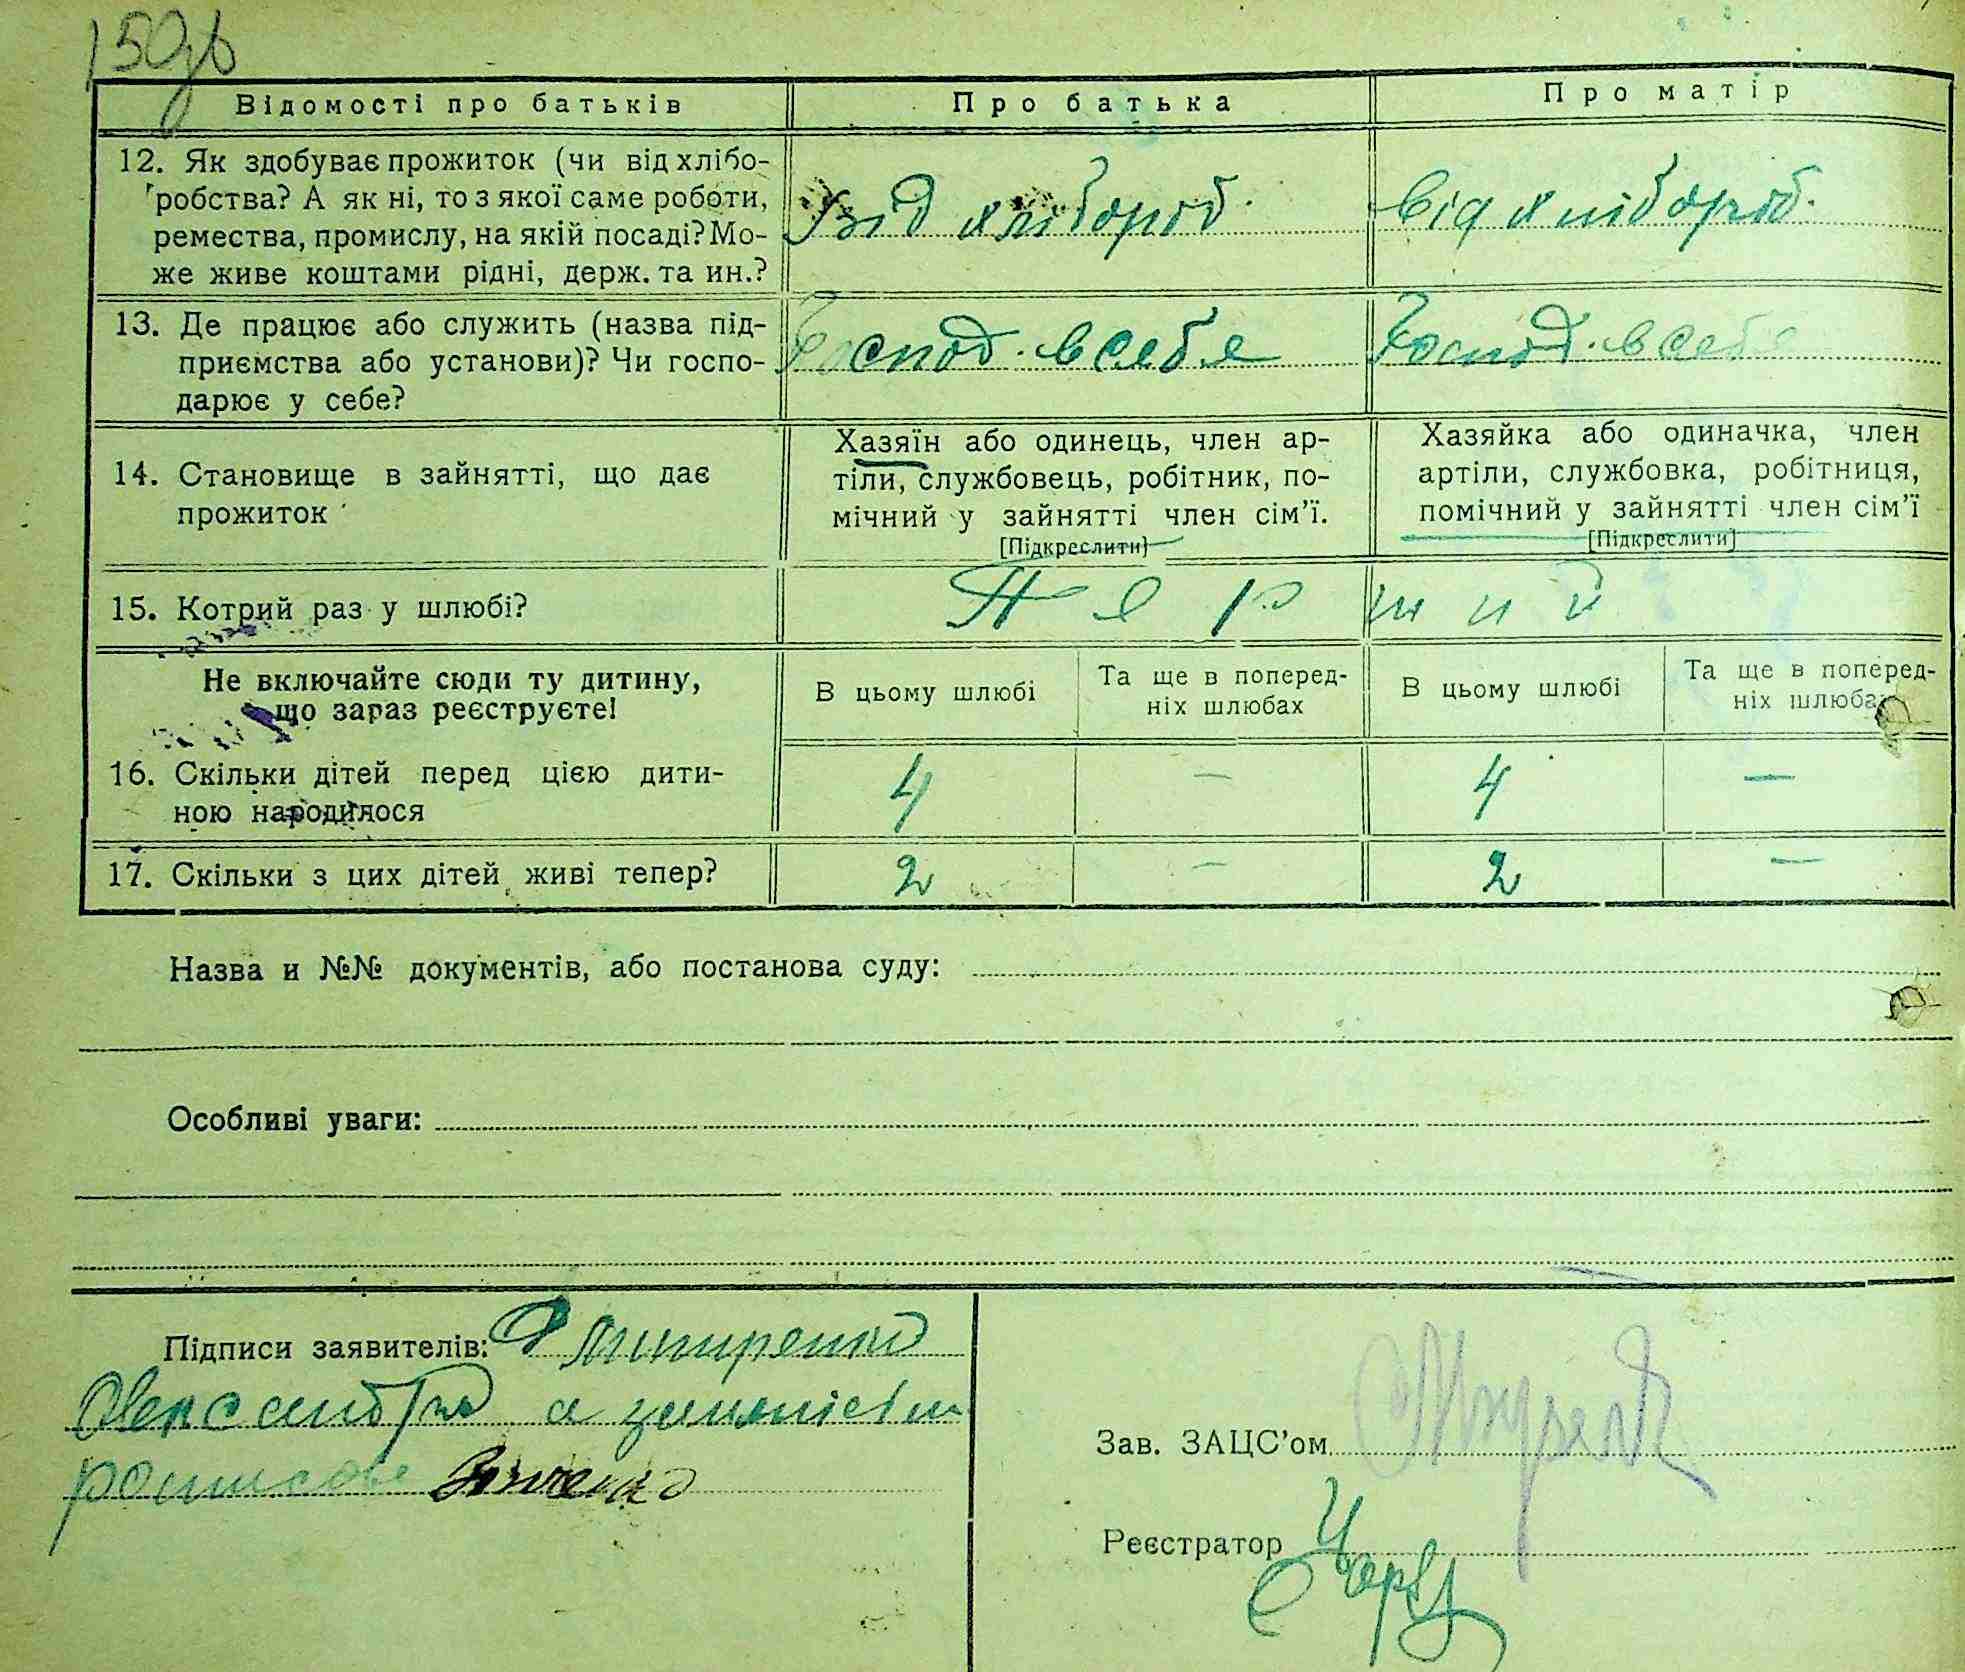 150зв
Відомості про батьків
Про батька
Про матір
12. Як здобуває прожиток (чи від хлібо-
робства? А як ні, то з якої саме роботи,
ремества, промислу, на якій посаді? Мо-
же живе коштами рідні, держ. та ин.?
Від хлібороб.
Від хлібороб.
13. Де працює або служить (назва під-
приємства або установи)? Чи госпо-
дарює у себе?
Господ. в себе
Господ. в себе
14. Становище в зайнятті, що дає
прожиток
Хазяїн або одинець, член ар-
тіли, службовець, робітник, по-
мічний у зайнятті член сім'ї.
[Підкреслити]
Хазяйка або одиначка, член
артіли, службовка, робітниця,
помічний у зайнятті член сім'ї
[Підкреслити]
15. Котрий раз у шлюбі?
Перший
Не включайте сюди ту дитину,
що зараз реєструєте!
В цьому шлюбі
Та ще в поперед-
ніх шлюбах
В цьому шлюбі
Та ще в поперед-
ніх шлюбах
16. Скільки дітей перед цією дити-
ною народилося
4 — 4 —
17. Скільки з цих дітей живі тепер?
2 — 2 —
Назва и №№ документів, або постанова суду:
Особливі уваги:
Підписи заявителів: Дмитренко
Олександра а
Зав. ЗАЦС'ом
Реєстратор